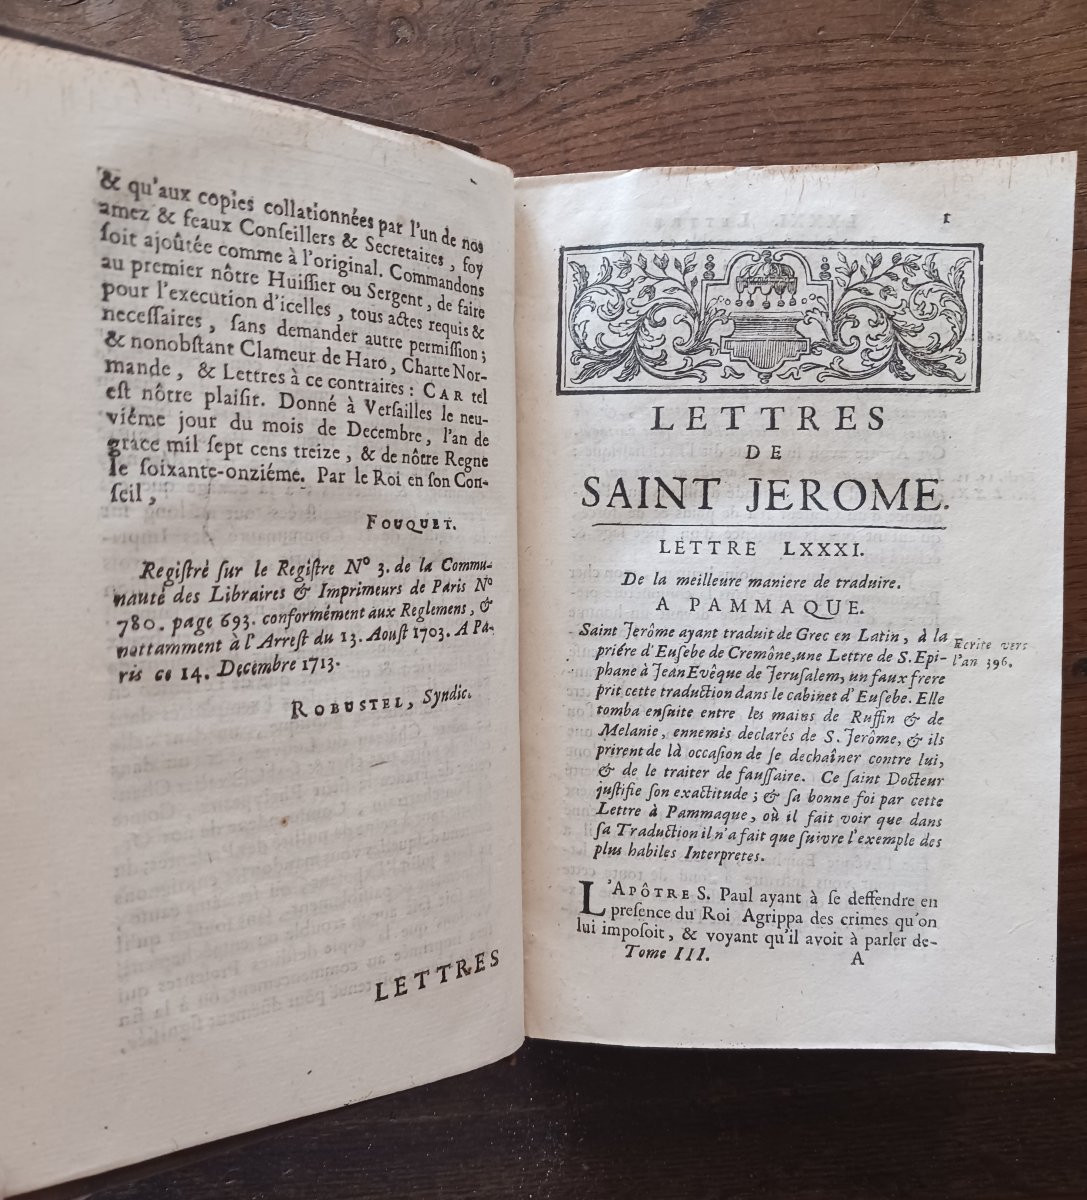 & qu'aux copies collationnées par l'un de nos
amez & feaux Conseillers & Secretaires, foy
soit ajoûtée comme à l'original. Commandons
au premier nôtre Huissier ou Sergent, de faire
pour l'execution d'icelles, tous actes requis &
necessaires, sans demander autre permission;
& nonobstant Clameur de Haro, Charte Nor-
mande, & Lettres à ce contraires: CAR tel
est nôtre plaisir. Donné à Versailles le neu-
viéme jour du mois de Decembre, l'an de
grace mil sept cens treize, & de nôtre Regne
le soixante-onziéme. Par le Roi en son Con-
seil,
FOUQUET.
Registré sur le Registre N° 3. de la Commu-
nauté des Libraires & Imprimeurs de Paris N°
780. page 693. conformément aux Reglemens, &
nottamment à l'Arrest du 13. Aoust 1703. A Pa-
ris ce 14. Decembre 1713.
ROBUSTEL, Syndic.
LETTRES
1
LETTRES
DE
SAINT JEROME.
LETTRE LXXXI.
De la meilleure maniere de traduire.
A PAMMAQUE.
Saint Jerôme ayant traduit de Grec en Latin, à la
priére d'Eusebe de Cremône, une Lettre de S. Epi-
phane à Jean Evêque de Jerusalem, un faux frere
prit cette traduction dans le cabinet d'Eusebe. Elle
tomba ensuite entre les mains de Ruffin & de
Melanie, ennemis declarés de S. Jerôme, & ils
prirent de là occasion de se dechaîner contre lui,
& de le traiter de faussaire. Ce saint Docteur
justifie son exactitude; & sa bonne foi par cette
Lettre à Pammaque, où il fait voir que dans
sa Traduction il n'a fait que suivre l'exemple des
plus habiles Interpretes.
Ecrite vers
l'an 396.
L'APÔTRE S. Paul ayant à se deffendre en
presence du Roi Agrippa des crimes qu'on
lui imposoit, & voyant qu'il avoit à parler de-
Tome III. A